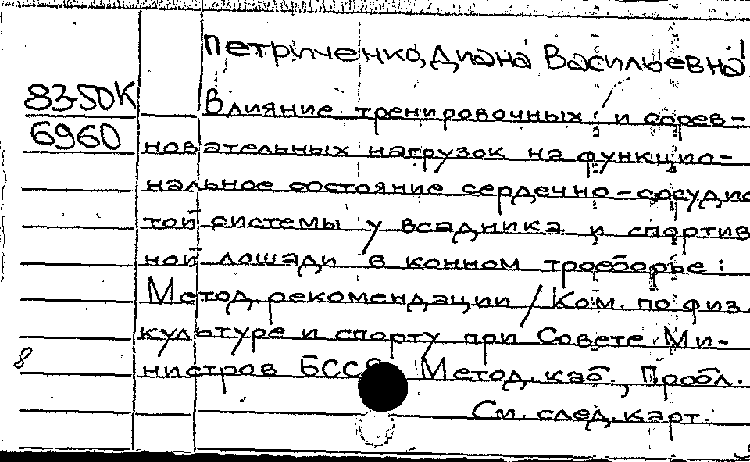 Петриченко, Диана Васильевна
8350К
Влияние тренировочных и сорев-
6960
новательных нагрузок на функцио-
нальное состояние сердечно-сосудис
той системы у всадника и спортив
ной лошади в конном троеборье:
Метод. рекомендации / Ком. по физ.
культуре и спорту при Совете Ми-
8
нистров БССР. Метод. каб., Пробл.
См. след. карт.